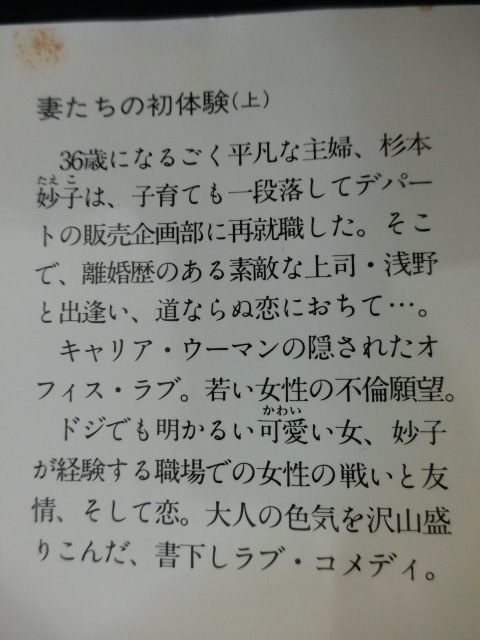 妻たちの初体験(上)
36歳になるごく平凡な主婦、杉本
妙子は、子育ても一段落してデパー
トの販売企画部に再就職した。そこ
で、離婚歴のある素敵な上司・浅野
と出逢い、道ならぬ恋におちて…。
キャリア・ウーマンの隠されたオ
フィス・ラブ。若い女性の不倫願望。
ドジでも明かるい可愛い女、妙子
が経験する職場での女性の戦いと友
情、そして恋。大人の色気を沢山盛
りこんだ、書下しラブ・コメディ。